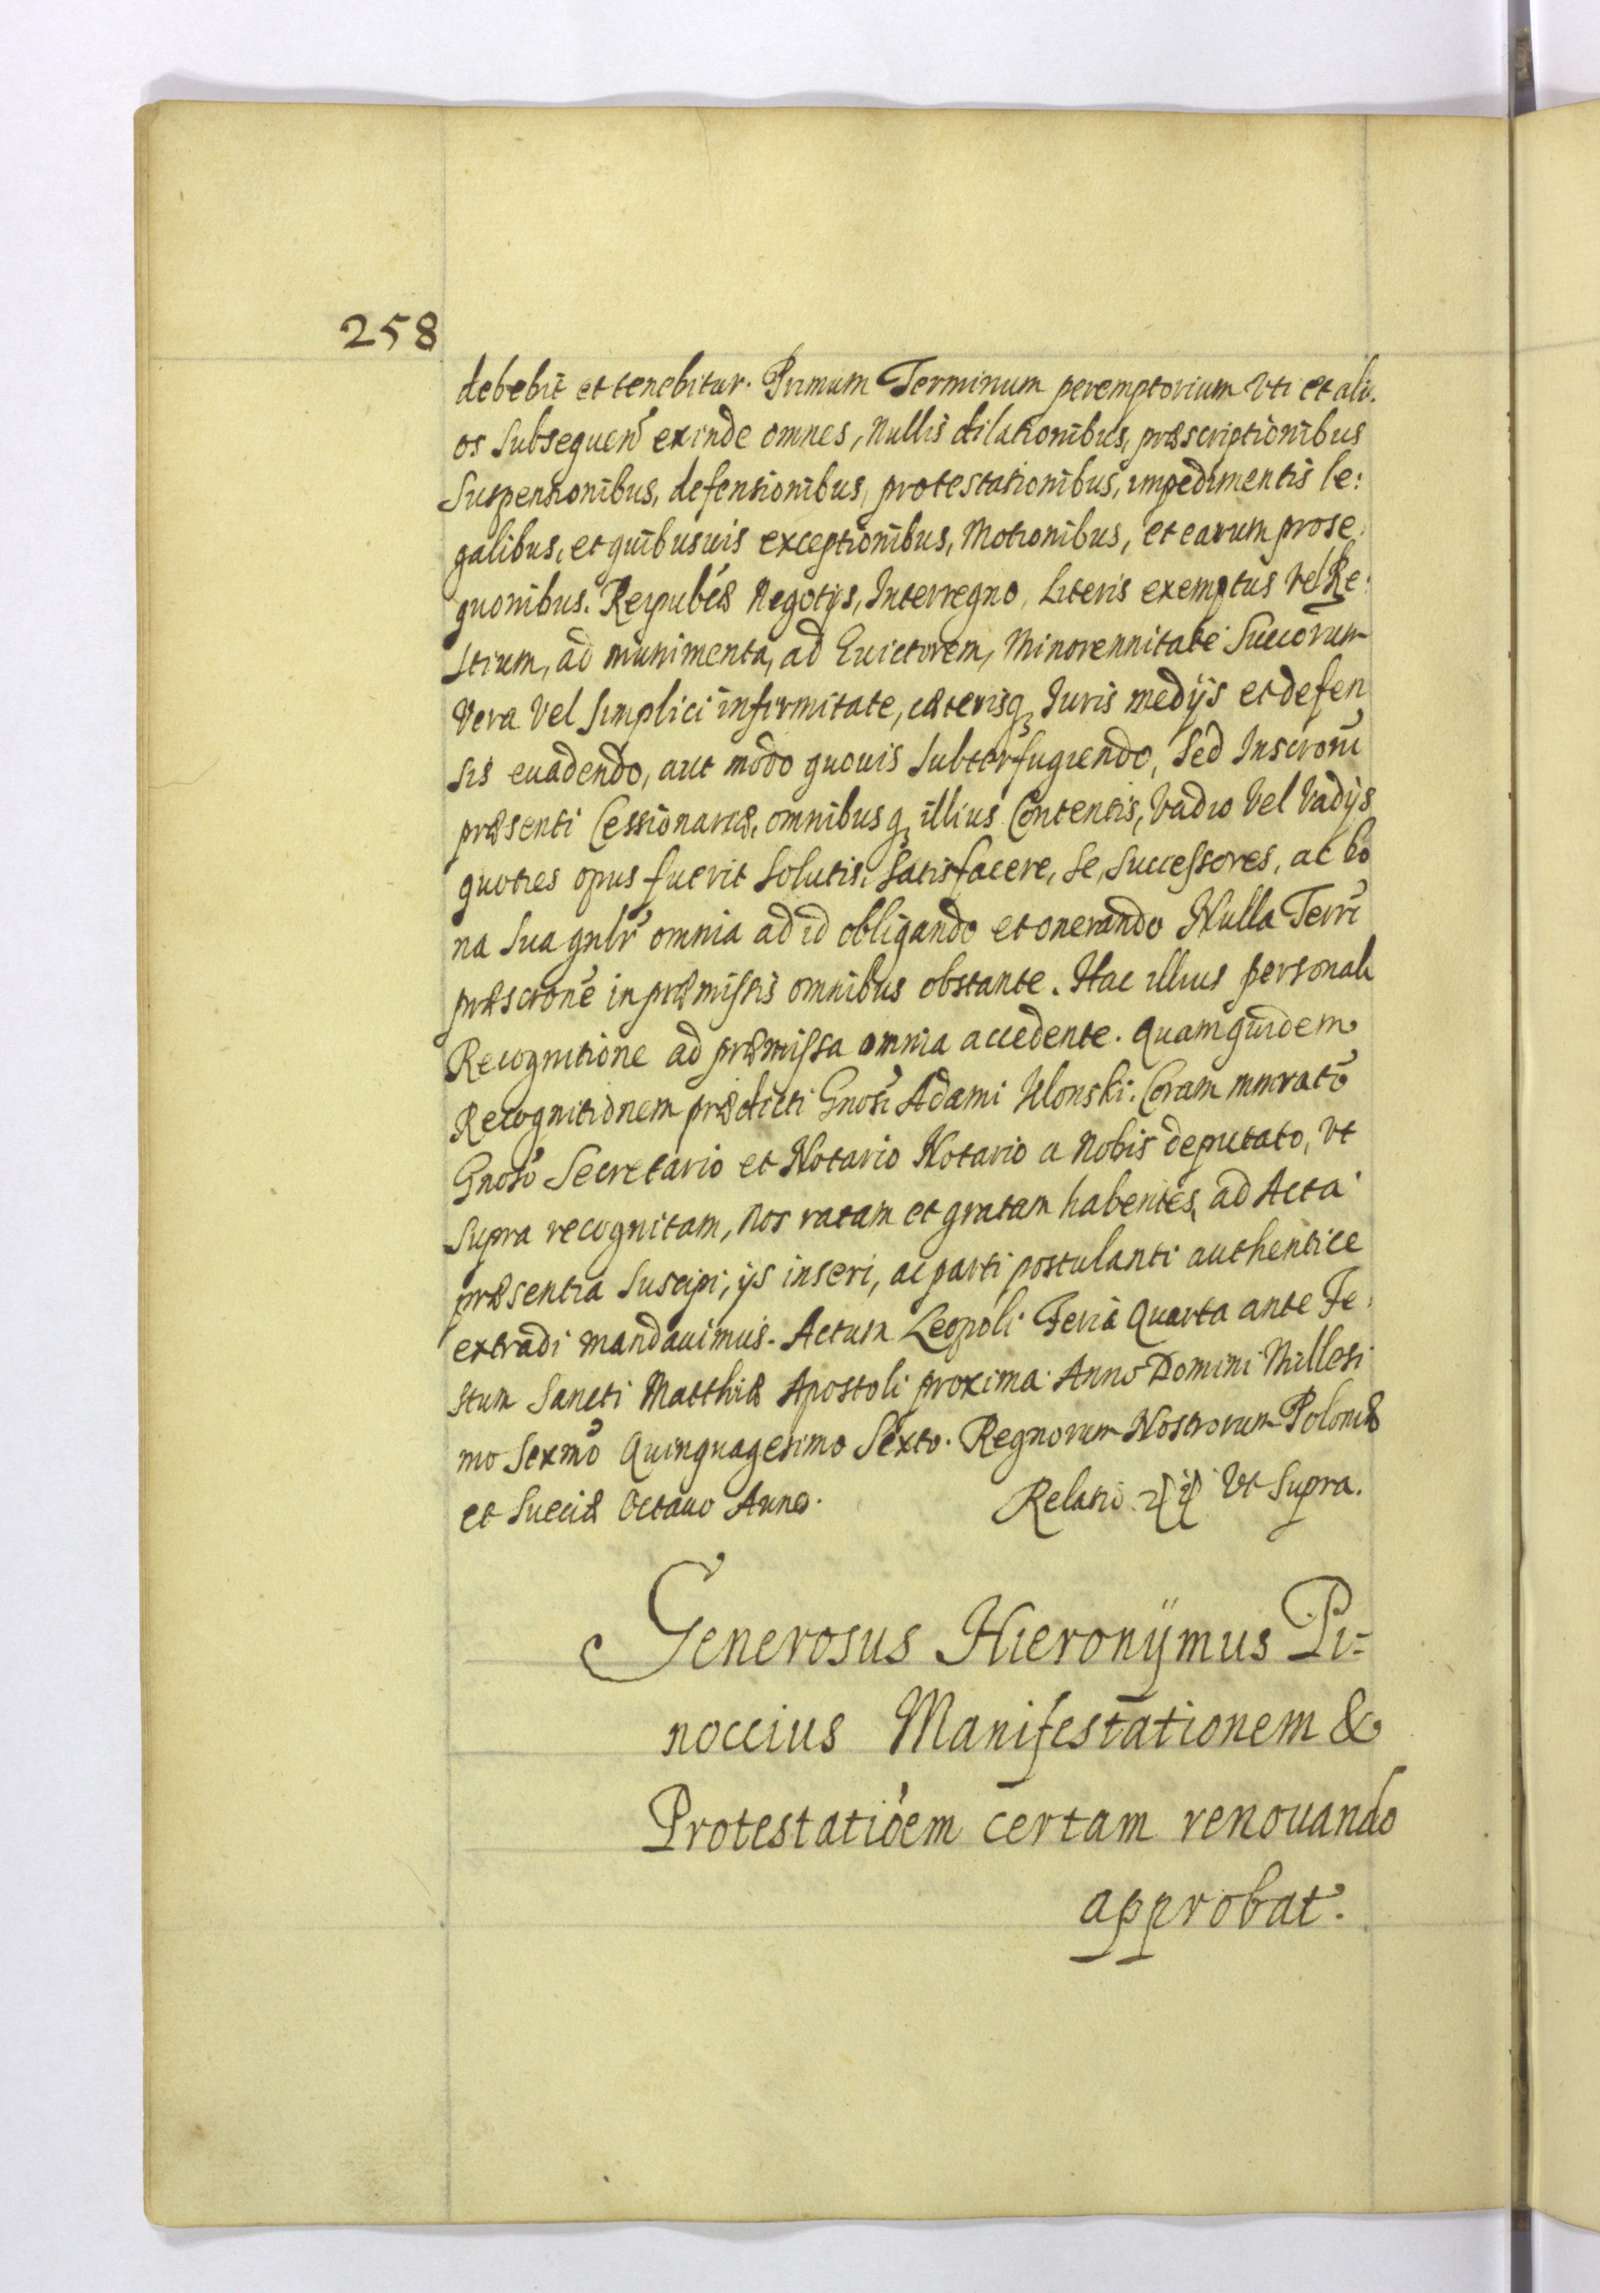 258
debebit et tenebitur. Primum Terminum peremptorium Vti et ali.
os Subsequen̄ exinde omnes, Nullis dilationibus, præscriptionibus
Suspensionibus, defensionibus, protestationibus, impedimentis le:
galibus, et quibusuis exceptionibus, Motionibus, et earum prose.
quonibus. Reipubcæ Negotijs, Interregno, Literis exemptus Vel Re.
stium, ad munimenta, ad Euictorem, Minorennitate Succorum
Vera Vel Simplici infirmitate, cæterisq, Iuris medijs et defen
sis euadendo, aut modo quouis Subterfugiendo, Sed Inscroni
præsenti Cessionariæ, omnibusq, illius Contentis, Vadio Vel Vadijs
quoties opus fuerit Solutis, Satisfacere, Se, Successores, ac bo
na Sua gnlr̄ omnia ad id obligando et onerando Nulla Terrī
præscrone in præmissis omnibus obstante. Hac illius personali
Recognitione ad præmissa omnia accedente. Quamquidem
Recognitionem prædicti Gnosi Adami Ulonski. Coram mmrato
Gnoso Secretario et Notario Notario a Nobis deputato, Vt
Supra recognitam, Nos ratam et gratam habentes, ad Acta
præsentia Suscipi, ijs inseri, ac parti postulanti authentice
extradi mandauimus. Actum Leopoli Feria Quarta ante Fe.
stum Sancti Matthiæ Apostoli proxima Anno Domini Millesi
mo Sexmo Quinquagesimo Sexto. Regnorum Nostrorum Poloniæ
et Sueciæ Octauo Anno. Relatio Vt Supra.
Generosus Hieronÿmus Pi=
noccius Manifestationem &
Protestatioem certam renouando
approbat.